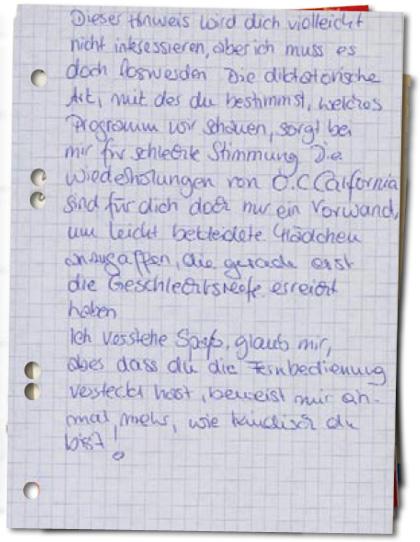 Dieser Hinweis wird dich vielleicht
nicht interessieren, aber ich muss es
doch loswerden Die diktatorische
Art, mit der du bestimmst, welches
Programm wir schauen, sorgt bei
mir für schlechte Stimmung Die
Wiederholungen von O.C California
sind für dich doch nur ein Vorwand,
um leicht bekleidete Mädchen
anzugaffen, die gerade erst
die Geschlechtsreife erreicht
haben
Ich verstehe Spaß, glaub mir,
aber dass du die Fernbedienung
versteckt hast, beweist mir ein-
mal mehr, wie kindisch du
bist!